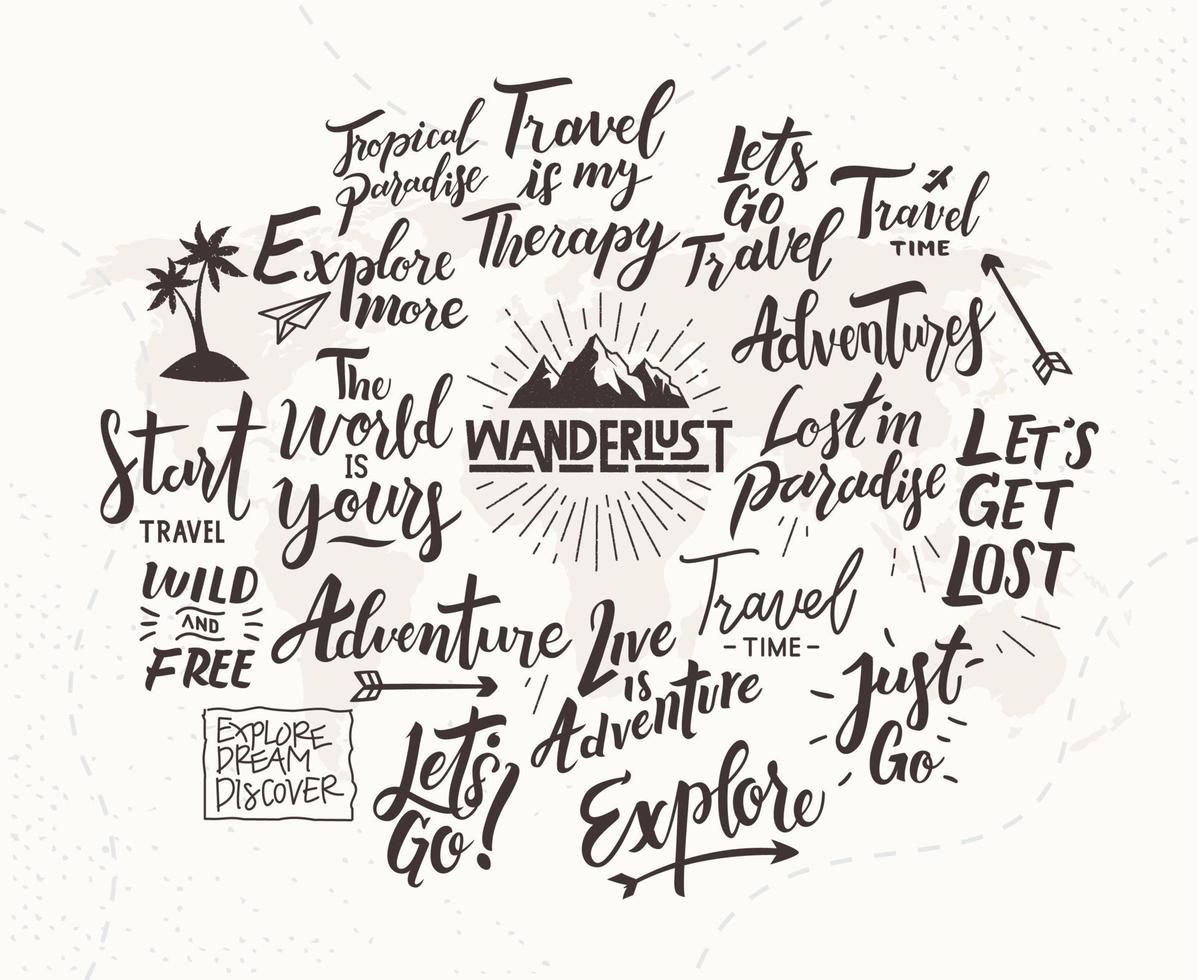 Tropical
Paradise
Travel
is my
Therapy
Lets
Go
Travel
Travel
TIME
Explore
more
Adventures
The
World
is
yours
WANDERLUST
Lost in
paradise
LET'S
GET
LOST
Start
TRAVEL
WILD
AND
FREE
Adventure
Live
is
Adventure
Travel
-TIME-
Just
Go
EXPLORE
DREAM
DISCOVER
Let's
Go!
Explore